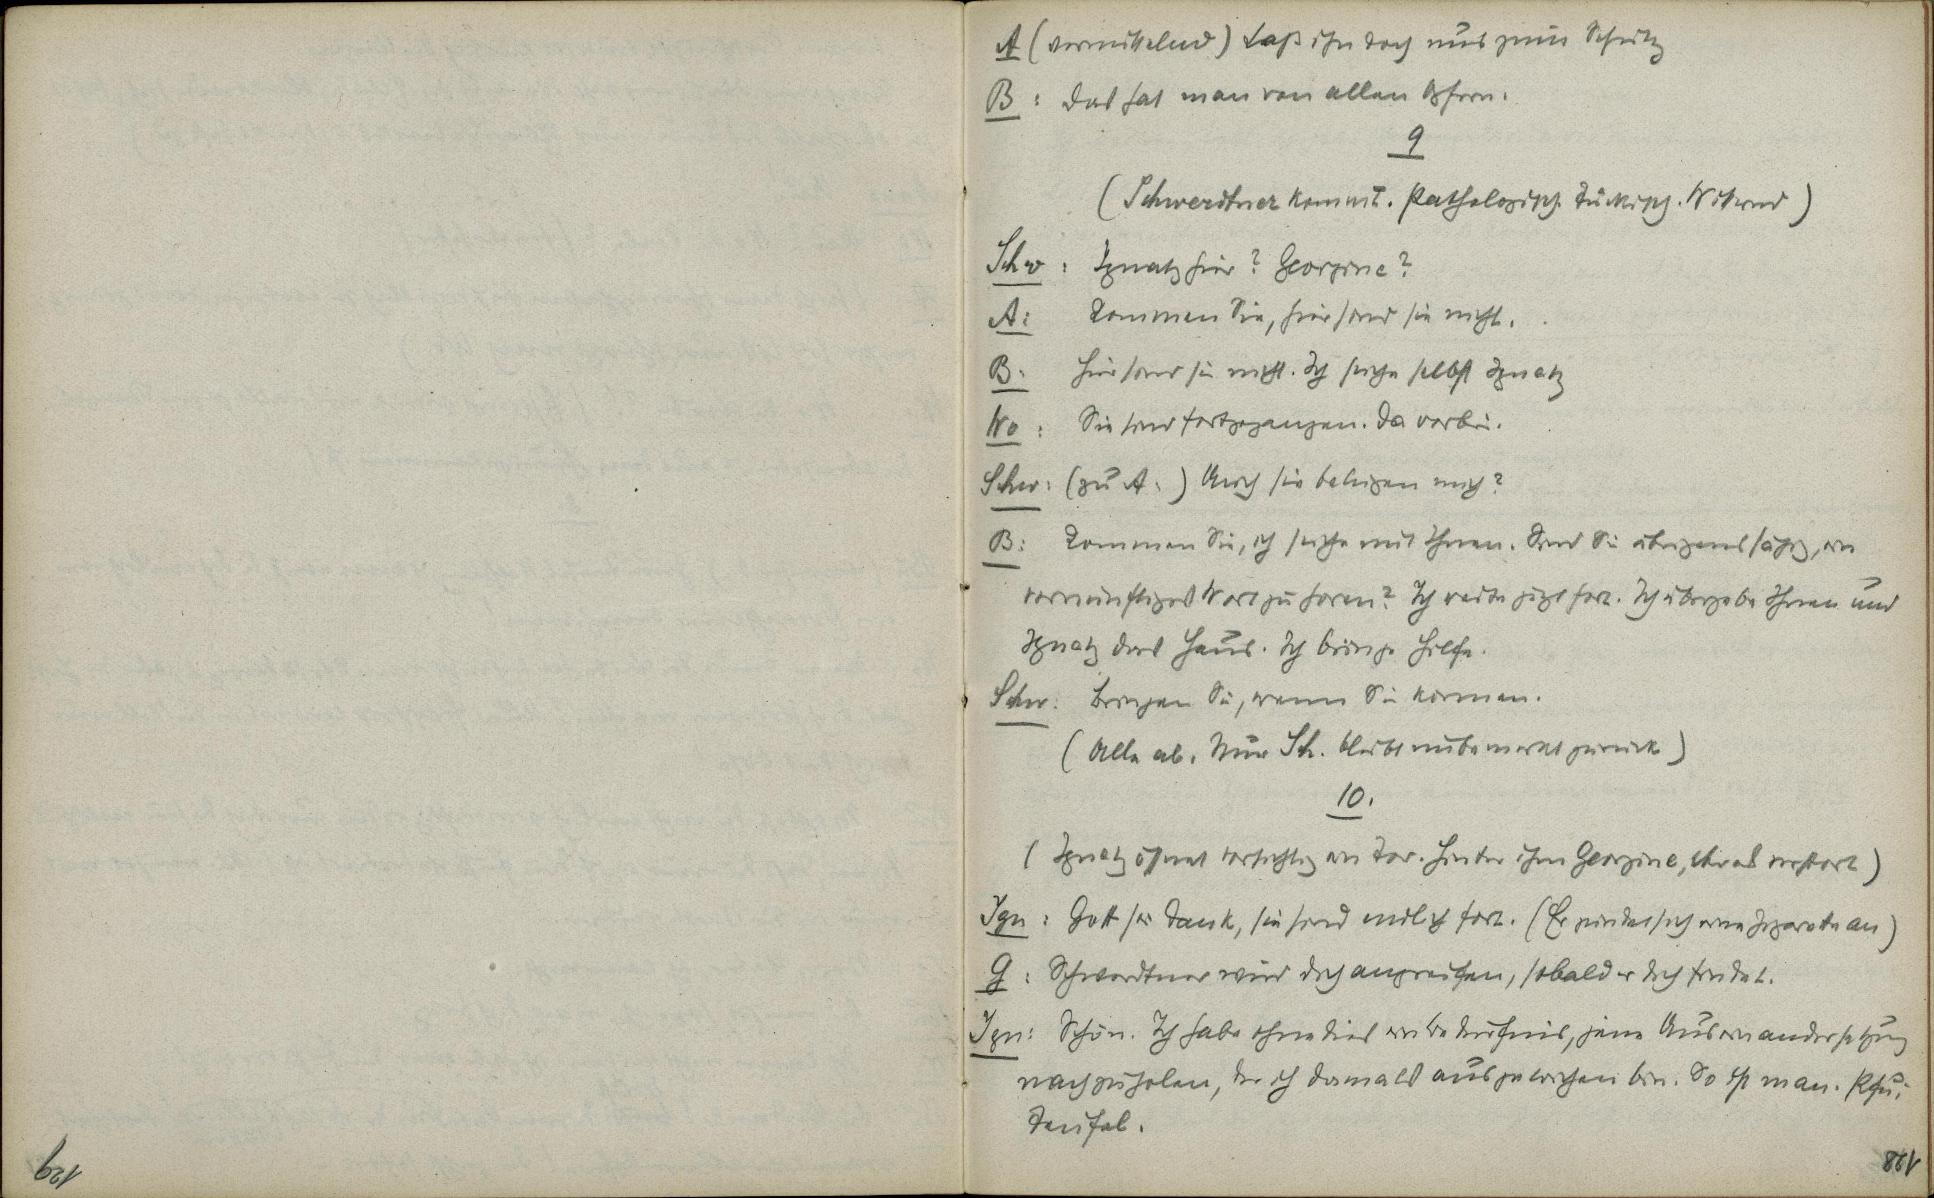 A (vermittelnd) Laß ihn doch uns zum Schutz
B: Das hat man von allen Opfern.
9
(Schwerdtner kommt. Pathologisch. Tückisch. Witternd)
Schw: Ignatz hier? Georgine?
A: Kommen Sie, hier sind sie nicht.
B: Hier sind sie nicht. Ich suche selbst Ignatz
Wo: Sie sind fortgegangen. Da vorbei.
Schw: (zu A:) Auch sie belügen mich?
B: Kommen Sie, ich suche mit Ihnen. Sind Sie übrigens fähig, ein
vernünftiges Wort zu hören? Ich reite jetzt fort. Ich übergebe Ihnen und
Ignatz das Haus. Ich bringe Hilfe.
Schw: Bringen Sie, wenn Sie können.
(Alle ab. Nur Sch. bleibt unbemerkt zurück)
10.
(Ignatz öffnet vorsichtig ein Tor. Hinter ihm Georgine, etwas verstört)
Ign: Gott sei Dank, sie sind endlich fort. (Er zündet sich eine Zigarette an)
G: Schwerdtner wird dich angreifen, sobald er dich findet.
Ign: Schön. Ich habe ohnedies ein Bedürfnis, jene Auseinandersetzung
nachzuholen, der ich damals ausgewichen bin. So ist man. Pfui
Teufel.
129
128